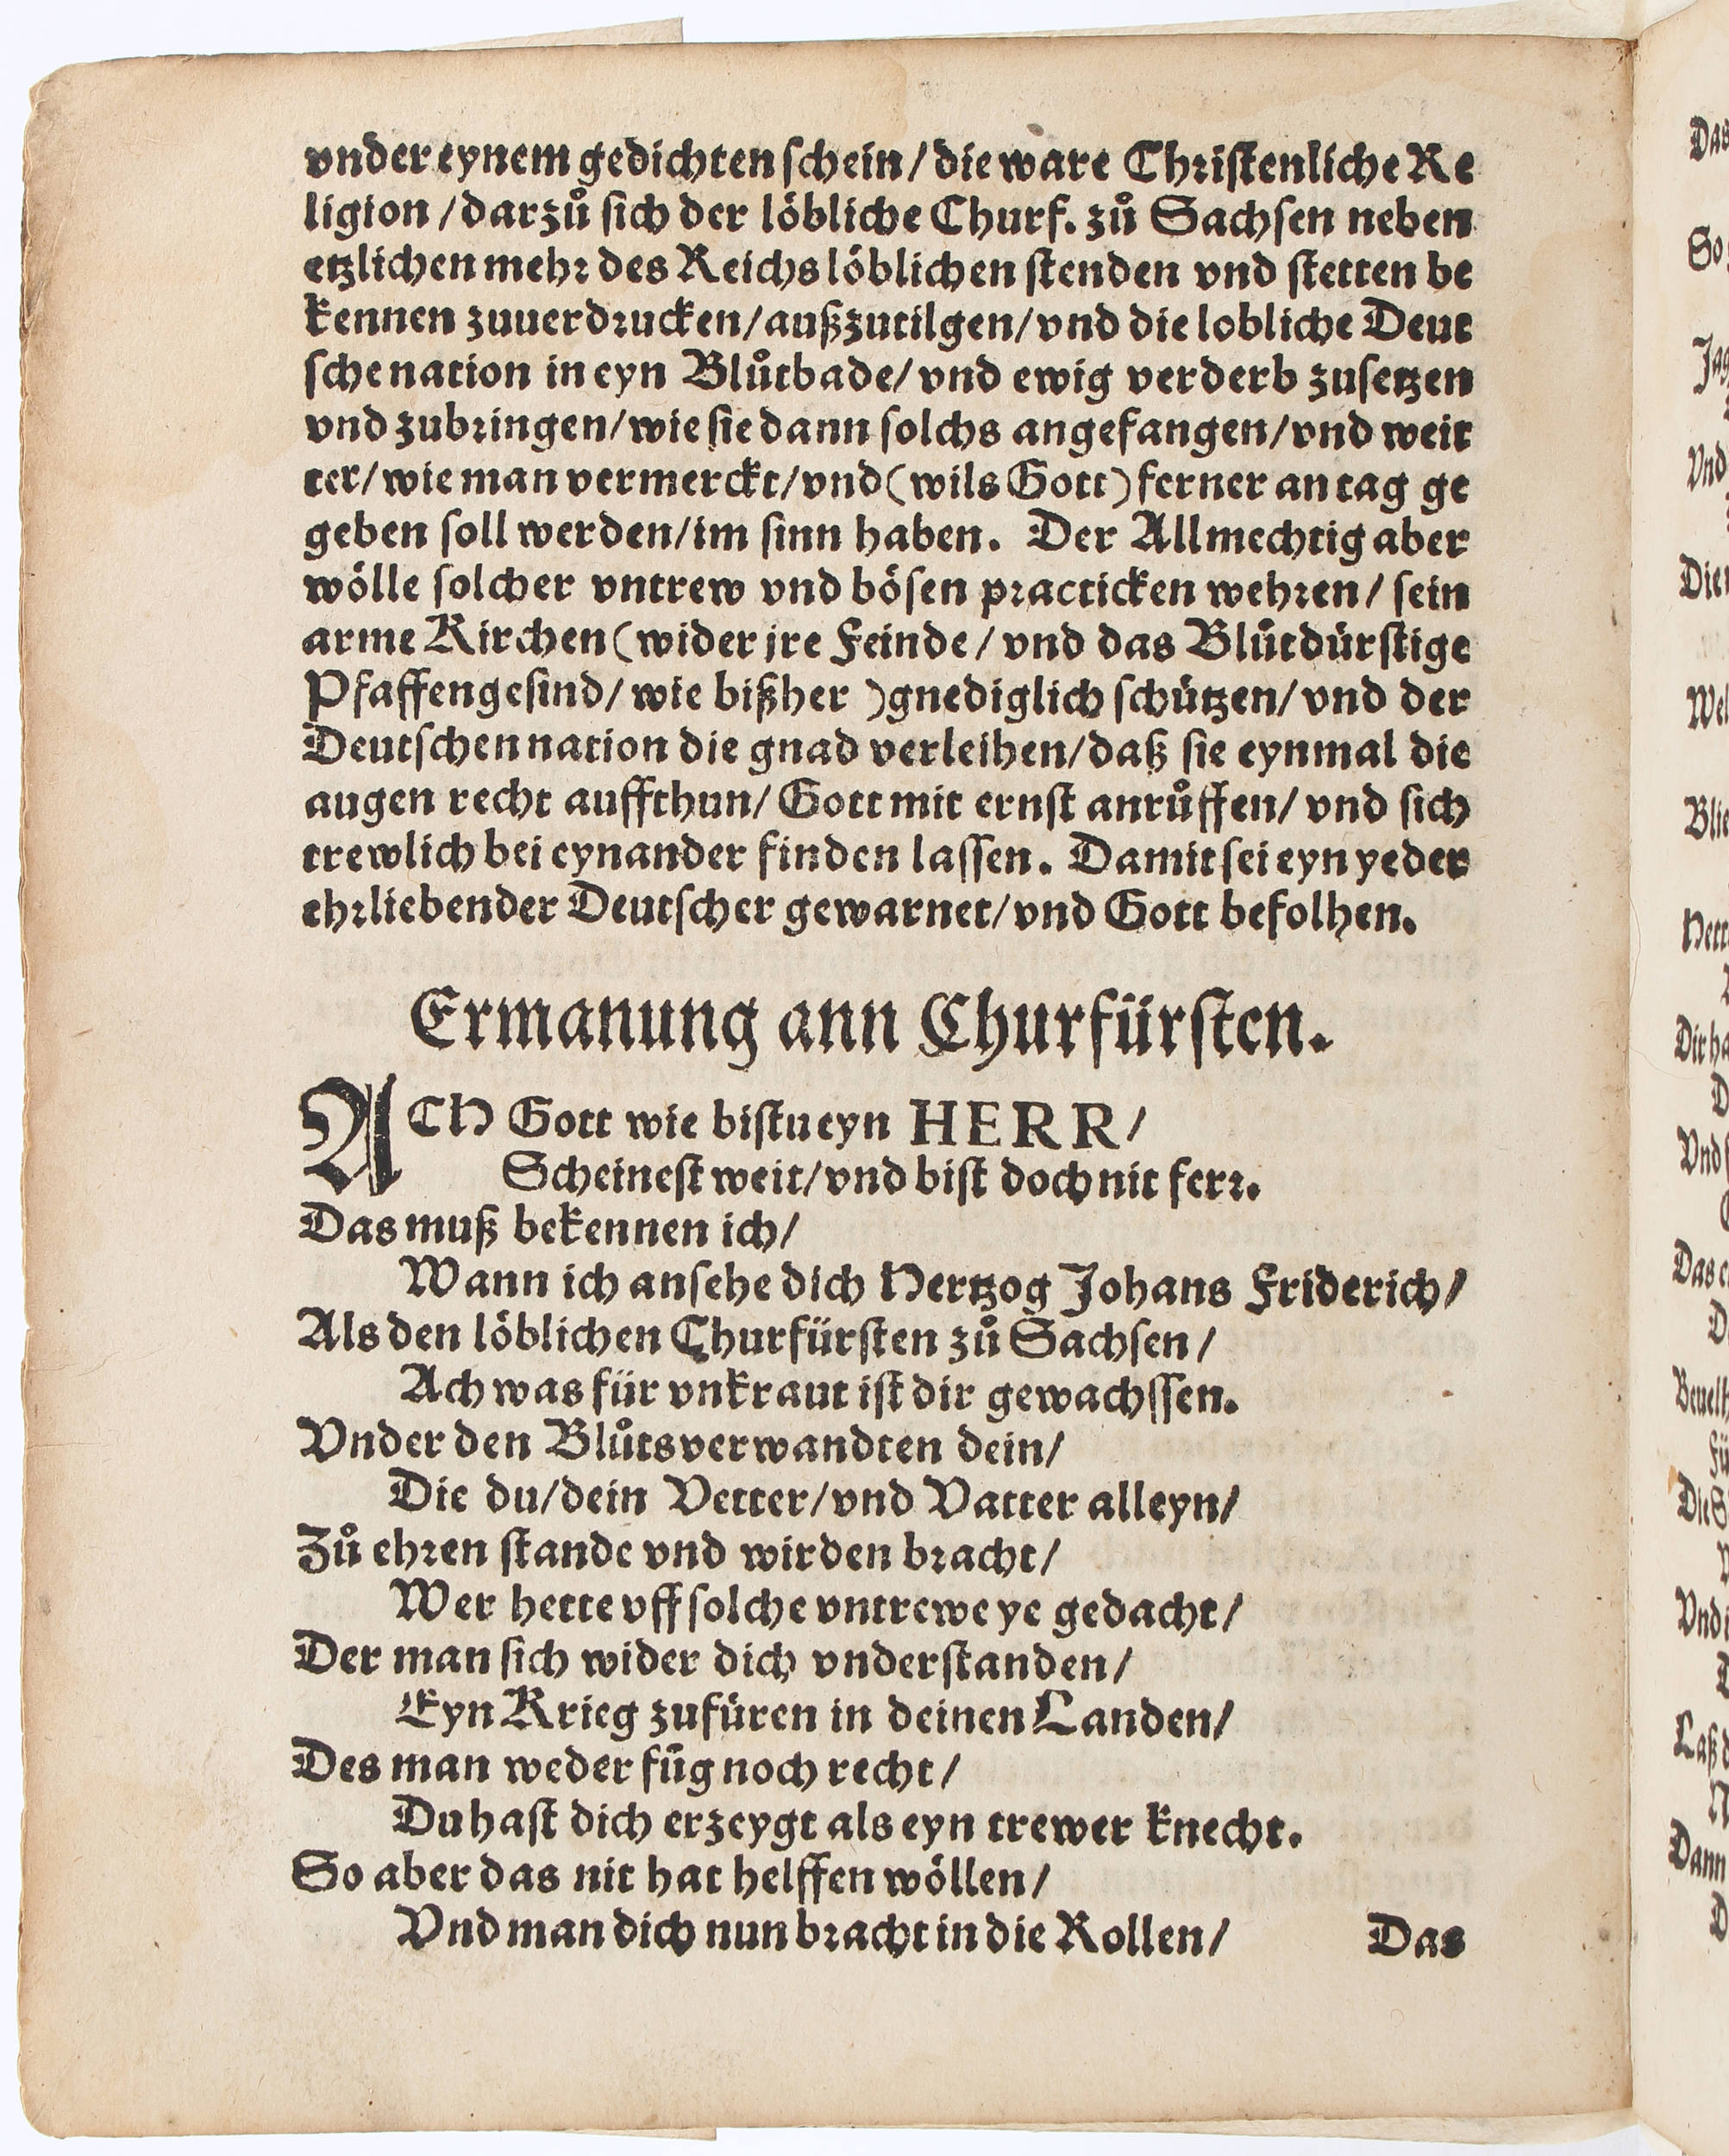 vnder eynem gedichten ſchein / die ware Chriſtenliche Re
ligion / darzů ſich der löbliche Churf. zů Sachſen neben
etzlichen mehr des Reichs löblichen ſtenden vnd ſtetten be
kennen zuuerdrucken / außzutilgen / vnd die lobliche Deut
ſche nation in eyn Blůtbade / vnd ewig verderb zuſetzen
vnd zubringen / wie ſie dann ſolchs angefangen / vnd weit
ter / wie man vermerckt / vnd (wils Gott) ferner an tag ge
geben ſoll werden / im ſinn haben. Der Allmechtig aber
wölle ſolcher vntrew vnd böſen practicken wehren / ſein
arme Kirchen (wider jre Feinde / vnd das Blůtdürſtige
Pfaffengeſind / wie bißher) gnediglich ſchützen / vnd der
Deutſchen nation die gnad verleihen / daß ſie eynmal die
augen recht auffthun / Gott mit ernſt anrůffen / vnd ſich
trewlich bei eynander finden laſſen. Damit ſei eyn yeder
ehrliebender Deutſcher gewarnet / vnd Gott befolhen.
Ermanung ann Churfürſten.
ACH Gott wie biſtu eyn HERR /
Scheineſt weit / vnd biſt doch nit ferr.
Das muß bekennen ich /
Wann ich anſehe dich Hertzog Johans Friderich /
Als den löblichen Churfürſten zů Sachſen /
Ach was für vnkraut iſt dir gewachſſen.
Vnder den Blůtsverwandten dein /
Die du / dein Vetter / vnd Vatter alleyn /
Zů ehren ſtande vnd wirden bracht /
Wer hette vff ſolche vntrewe ye gedacht /
Der man ſich wider dich vnderſtanden /
Eyn Krieg zufüren in deinen Landen /
Des man weder fůg noch recht /
Du haſt dich erzeygt als eyn trewer knecht.
So aber das nit hat helffen wöllen /
Vnd man dich nun bracht in die Rollen /
Das